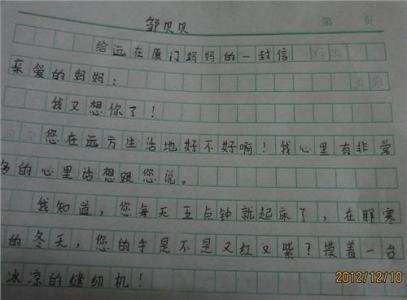 邹贝贝
第 页
给远在厦门妈妈的一封信
亲爱的妈妈：
我又想你了！
您在远方生活地好不好啊！我心里有非常
多的心里话想跟您说。
我知道，您每天五点钟就起床了，在那寒
的冬天，您的手是不是又红又紫？挨着一台
冰凉的缝纫机！
2012/12/10